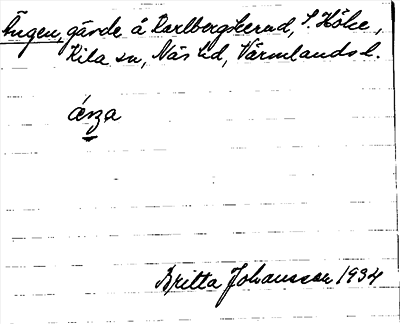 Ängen, gärde å Karlbergskerud, S. Höke,
Kila sn, Näs hd, Värmlands l.
Britta Johansson 1934